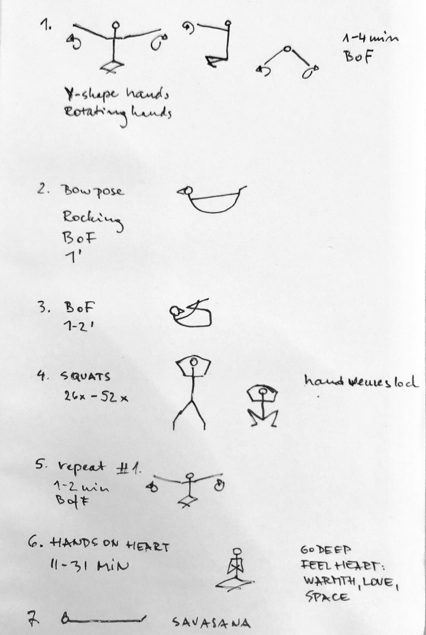 1.
1-4 min
BoF
Y-shape hands
Rotating hands
2. Bow pose
Rocking
BoF
1'
3. BoF
1-2'
4. SQUATS
26x - 52x
hand
5. repeat #1.
1-2 min
BoF
6. HANDS ON HEART
11-31 MIN
GO DEEP
FEEL HEART:
WARMTH, LOVE,
SPACE
7. SAVASANA